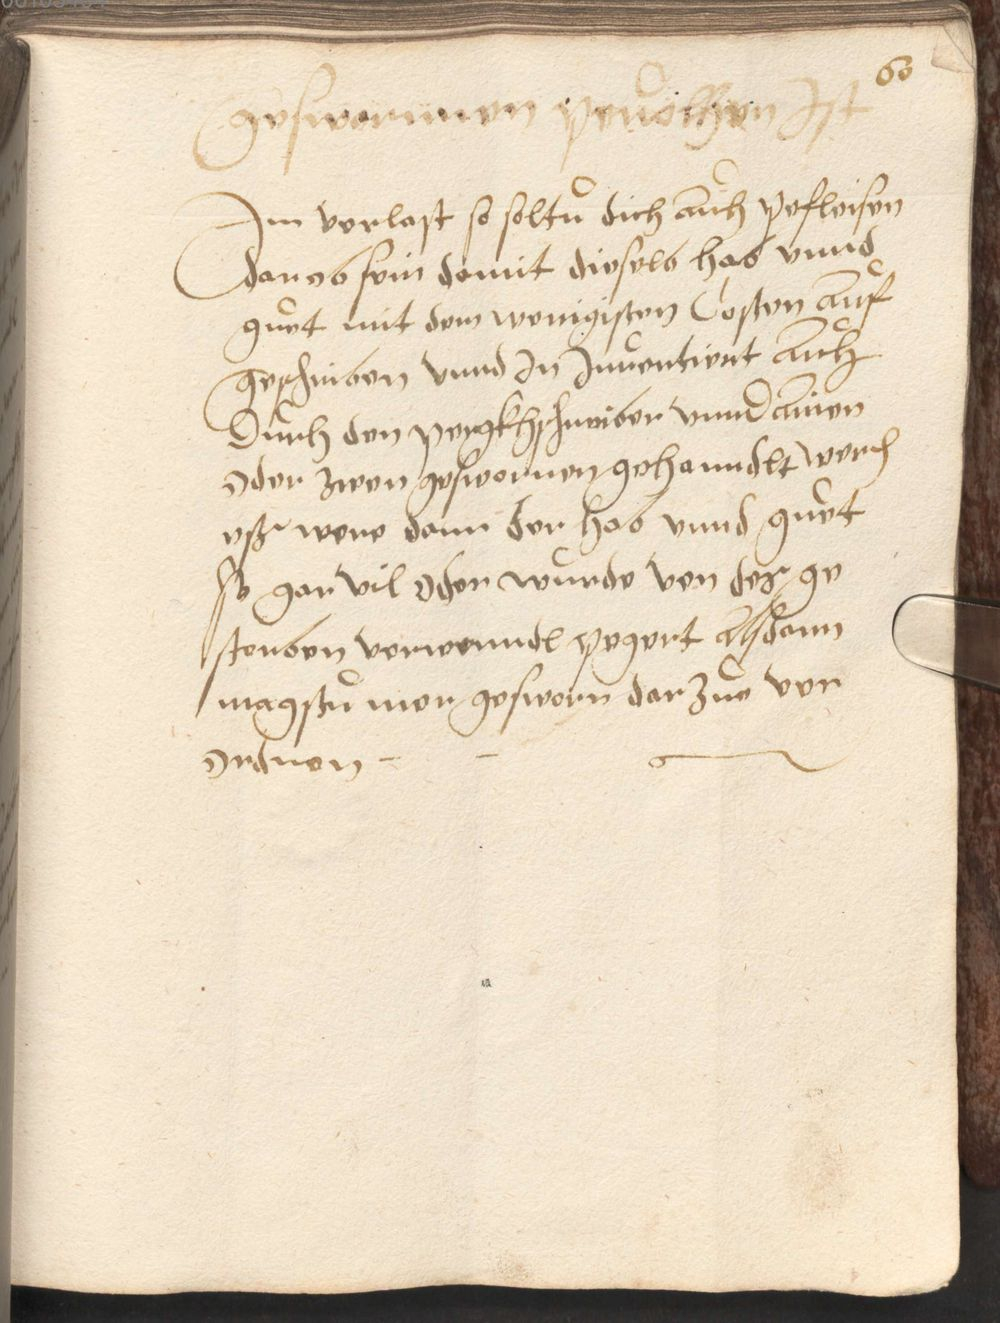 60
geswornnen pevolhen Ist
Im verlast so soltu dich auch pefleisen
darob sein damit dieselb hab vnnd
guet mit dem wenigisten Costen auf
geschriben vnnd In Inuentiert auch
Durch den pergkhschreiber vnnd ainen
oder zwen geswornen gehanndlt werd
esz were dann der hab vnnd guet
so gar vil oder wurde von des ge
storben verwanndt pegert alsdann
magstu mer gesworn dar Zue ver
ordnen